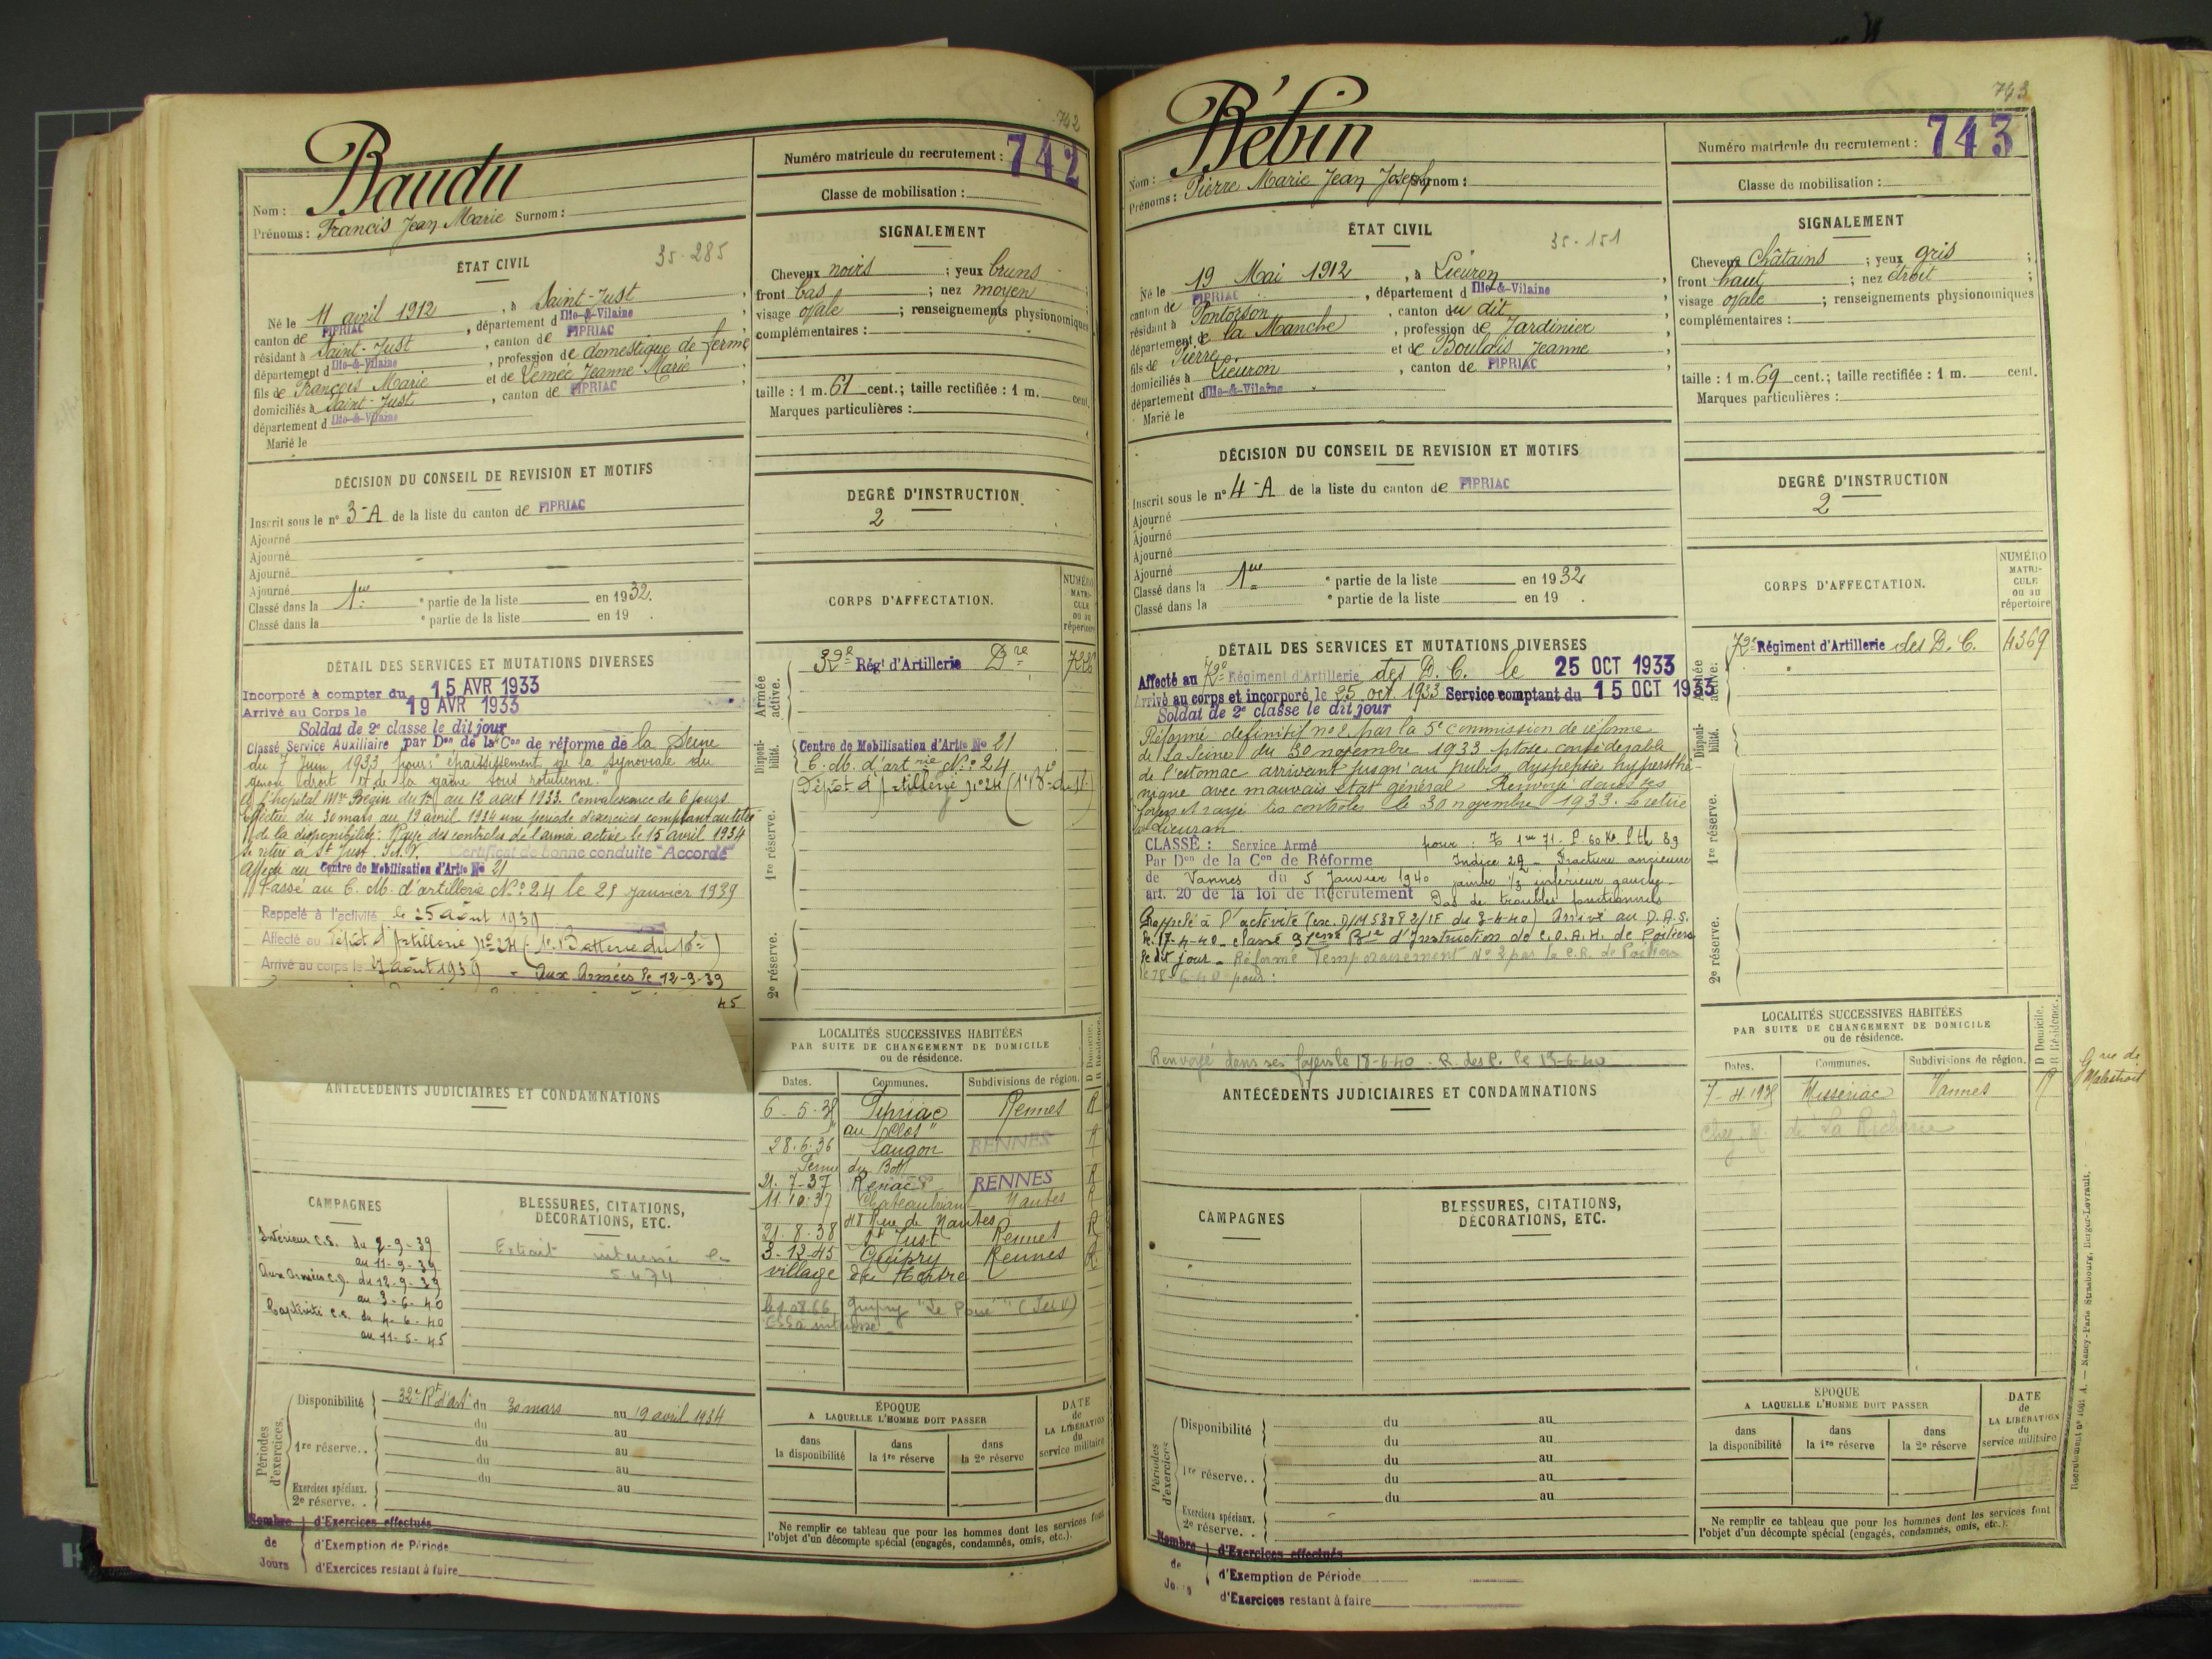 742
Numéro matricule du recrutement : 742
Nom : Baudu
Prénoms : Francis Jean Marie Surnom :
Classe de mobilisation :
ÉTAT CIVIL
35-285
Né le 11 avril 1912, à Saint-Just
canton de PIPRIAC, département d Ille-&-Vilaine
résidant à Saint-Just, canton de PIPRIAC
département d Ille-&-Vilaine, profession de domestique de ferme
fils de François Marie et de Lemée Jeanne Marie
domiciliés à Saint-Just, canton de PIPRIAC
département d Ille-&-Vilaine
Marié le
SIGNALEMENT
Cheveux noirs ; yeux bruns
front bas ; nez moyen ;
visage ovale ; renseignements physionomiques
complémentaires :
taille : 1 m. 61 cent.; taille rectifiée : 1 m. cent.
Marques particulières :
DÉCISION DU CONSEIL DE REVISION ET MOTIFS
Inscrit sous le n° 3-A de la liste du canton de PIPRIAC
Ajourné
Ajourné
Ajourné
Ajourné
Classé dans la 1ère partie de la liste en 1932.
Classé dans la partie de la liste en 19 .
DEGRÉ D'INSTRUCTION
2
CORPS D'AFFECTATION.
NUMÉRO MATRICULE ou au répertoire
Armée active.
32e Régt d'Artillerie Dre
Disponibilité.
Centre de Mobilisation d'Artie No 21
C. M. d'artrie No 24
1re réserve.
2e réserve.
DÉTAIL DES SERVICES ET MUTATIONS DIVERSES
Incorporé à compter du 15 AVR 1933
Arrivé au Corps le 19 AVR 1933
Soldat de 2e classe le dit jour
Classé Service Auxiliaire par Don de la Con de réforme de la Seine
du 7 Juin 1933 pour : "épaississement de la synoviale du
genou droit et de la gaine sous rotulienne."
A l'hopital Mre Bégin du 1er au 12 aout 1933. Convalescence de 6 jours
Effectué du 30 mars au 19 avril 1934 une période d'exercices comptant au titre
de la disponibilité. Rayé des controles de l'armée active le 15 avril 1934
Se retire à St Just. I.et V. Certificat de bonne conduite "Accordé"
Affecté au Centre de Mobilisation d'Artie No 21
Passé au C. M. d'artillerie No 24 le 21 Janvier 1939
Rappelé à l'activité le 25 août 1939
Affecté au Dépôt d'Artillerie no 24 (1e Batterie du 16e)
Arrivé au corps le 27 août 1939 - aux Armées le 12-9-39
45
ANTÉCÉDENTS JUDICIAIRES ET CONDAMNATIONS
LOCALITÉS SUCCESSIVES HABITÉES
PAR SUITE DE CHANGEMENT DE DOMICILE
ou de résidence.
Dates. Communes. Subdivisions de région. D Domicile. R Résidence.
Pipriac Rennes R
au "Clos"
28.6.36 Langon RENNES R
Ferme du Bot
21.7-37 Renac RENNES R
11.10.37 Chateaubriant Nantes R
48 Rue de Nantes
21-8-38 St Just Rennes R
3-12-45 Guipry Rennes R
village du Tertre
CAMPAGNES
Intérieur C.S. du 2-9-39
au 11-9-39
Aux Armées C.D. du 12-9-39
au 3-6-40
Captivité C.S. du 4-6-40
au 11-5-45
BLESSURES, CITATIONS,
DÉCORATIONS, ETC.
Extrait
5.4.74
Périodes d'exercices.
Disponibilité 32e Rt d'Art du 30 mars au 19 avril 1934
du au
1re réserve.. du au
du au
du au
Exercices spéciaux.
2e réserve. .
ÉPOQUE
A LAQUELLE L'HOMME DOIT PASSER
dans la disponibilité dans la 1re réserve dans la 2e réserve
DATE de LA LIBÉRATION du service militaire
Ne remplir ce tableau que pour les hommes dont les services font
l'objet d'un décompte spécial (engagés, condamnés, omis, etc.).
Nombre de Jours
d'Exercices effectués
d'Exemption de Période
d'Exercices restant à faire
743
Numéro matricule du recrutement : 743
Nom : Bébin
Prénoms : Pierre Marie Jean Joseph Surnom :
Classe de mobilisation :
ÉTAT CIVIL
35-151
Né le 19 Mai 1912, à Lieuron
canton de PIPRIAC, département d Ille-&-Vilaine
résidant à Pontorson, canton du dit
département de la Manche, profession de Jardinier
fils de Pierre et de Boulais Jeanne
domiciliés à Lieuron, canton de PIPRIAC
département d Ille-&-Vilaine
Marié le
SIGNALEMENT
Cheveux Châtains ; yeux gris ;
front haut ; nez droit ;
visage ovale ; renseignements physionomiques
complémentaires :
taille : 1 m. 69 cent.; taille rectifiée : 1 m. cent.
Marques particulières :
DÉCISION DU CONSEIL DE REVISION ET MOTIFS
Inscrit sous le n° 4-A de la liste du canton de PIPRIAC
Ajourné
Ajourné
Ajourné
Ajourné
Classé dans la 1ère partie de la liste en 1932
Classé dans la partie de la liste en 19 .
DEGRÉ D'INSTRUCTION
2
CORPS D'AFFECTATION.
NUMÉRO MATRICULE ou au répertoire
Armée active.
72e Régiment d'Artillerie des D. C. 4369
Disponibilité.
1re réserve.
2e réserve.
DÉTAIL DES SERVICES ET MUTATIONS DIVERSES
Affecté au 72e Régiment d'Artillerie des D. C. le 25 OCT 1933
Arrivé au corps et incorporé le 25 oct 1933 Service comptant du 15 OCT 1933
Soldat de 2e classe le dit jour
Réformé définitif no 2 par la 5e commission de réforme
de La Seine du 30 novembre 1933 ptose considérable
de l'estomac arrivant jusqu'au pubis, dyspepsie hypersthé-
nique avec mauvais état général. Renvoyé dans ses
foyers et rayé des controles le 30 novembre 1933. Se retire
à Lieuron
CLASSÉ : Service Armé pour : T 1m 71. P. 60 Ko P.th 89
Par Don de la Con de Réforme Indice 29 - Fracture ancienne
de Vannes du 5 Janvier 1940 jambe 1/3 inférieur gauche -
art. 20 de la loi de Recrutement Pas de troubles fonctionnels
Rappelé à l'activité Arrivé au D.A.S.
le 17-4-40 classé 91eme Bie d'Instruction de C.O.A.H. de Poitiers
le dit jour - Réformé Temporairement No 2 par la C.R. de Poitiers
pour :
Renvoyé dans ses foyers le 18-6-40 - R. des C. le 19-6-40
ANTÉCÉDENTS JUDICIAIRES ET CONDAMNATIONS
LOCALITÉS SUCCESSIVES HABITÉES
PAR SUITE DE CHANGEMENT DE DOMICILE
ou de résidence.
Dates. Communes. Subdivisions de région. D Domicile. R Résidence.
Missiriac Vannes R
Gie de Malestroit
Chez M. de La Richerie
CAMPAGNES
BLESSURES, CITATIONS,
DÉCORATIONS, ETC.
Périodes d'exercices
Disponibilité du au
du au
1re réserve.. du au
du au
du au
Exercices spéciaux.
2e réserve. .
ÉPOQUE
A LAQUELLE L'HOMME DOIT PASSER
dans la disponibilité dans la 1re réserve dans la 2e réserve
DATE de LA LIBÉRATION du service militaire
Ne remplir ce tableau que pour les hommes dont les services font
l'objet d'un décompte spécial (engagés, condamnés, omis, etc.).
Nombre de Jours
d'Exercices effectués
d'Exemption de Période
d'Exercices restant à faire